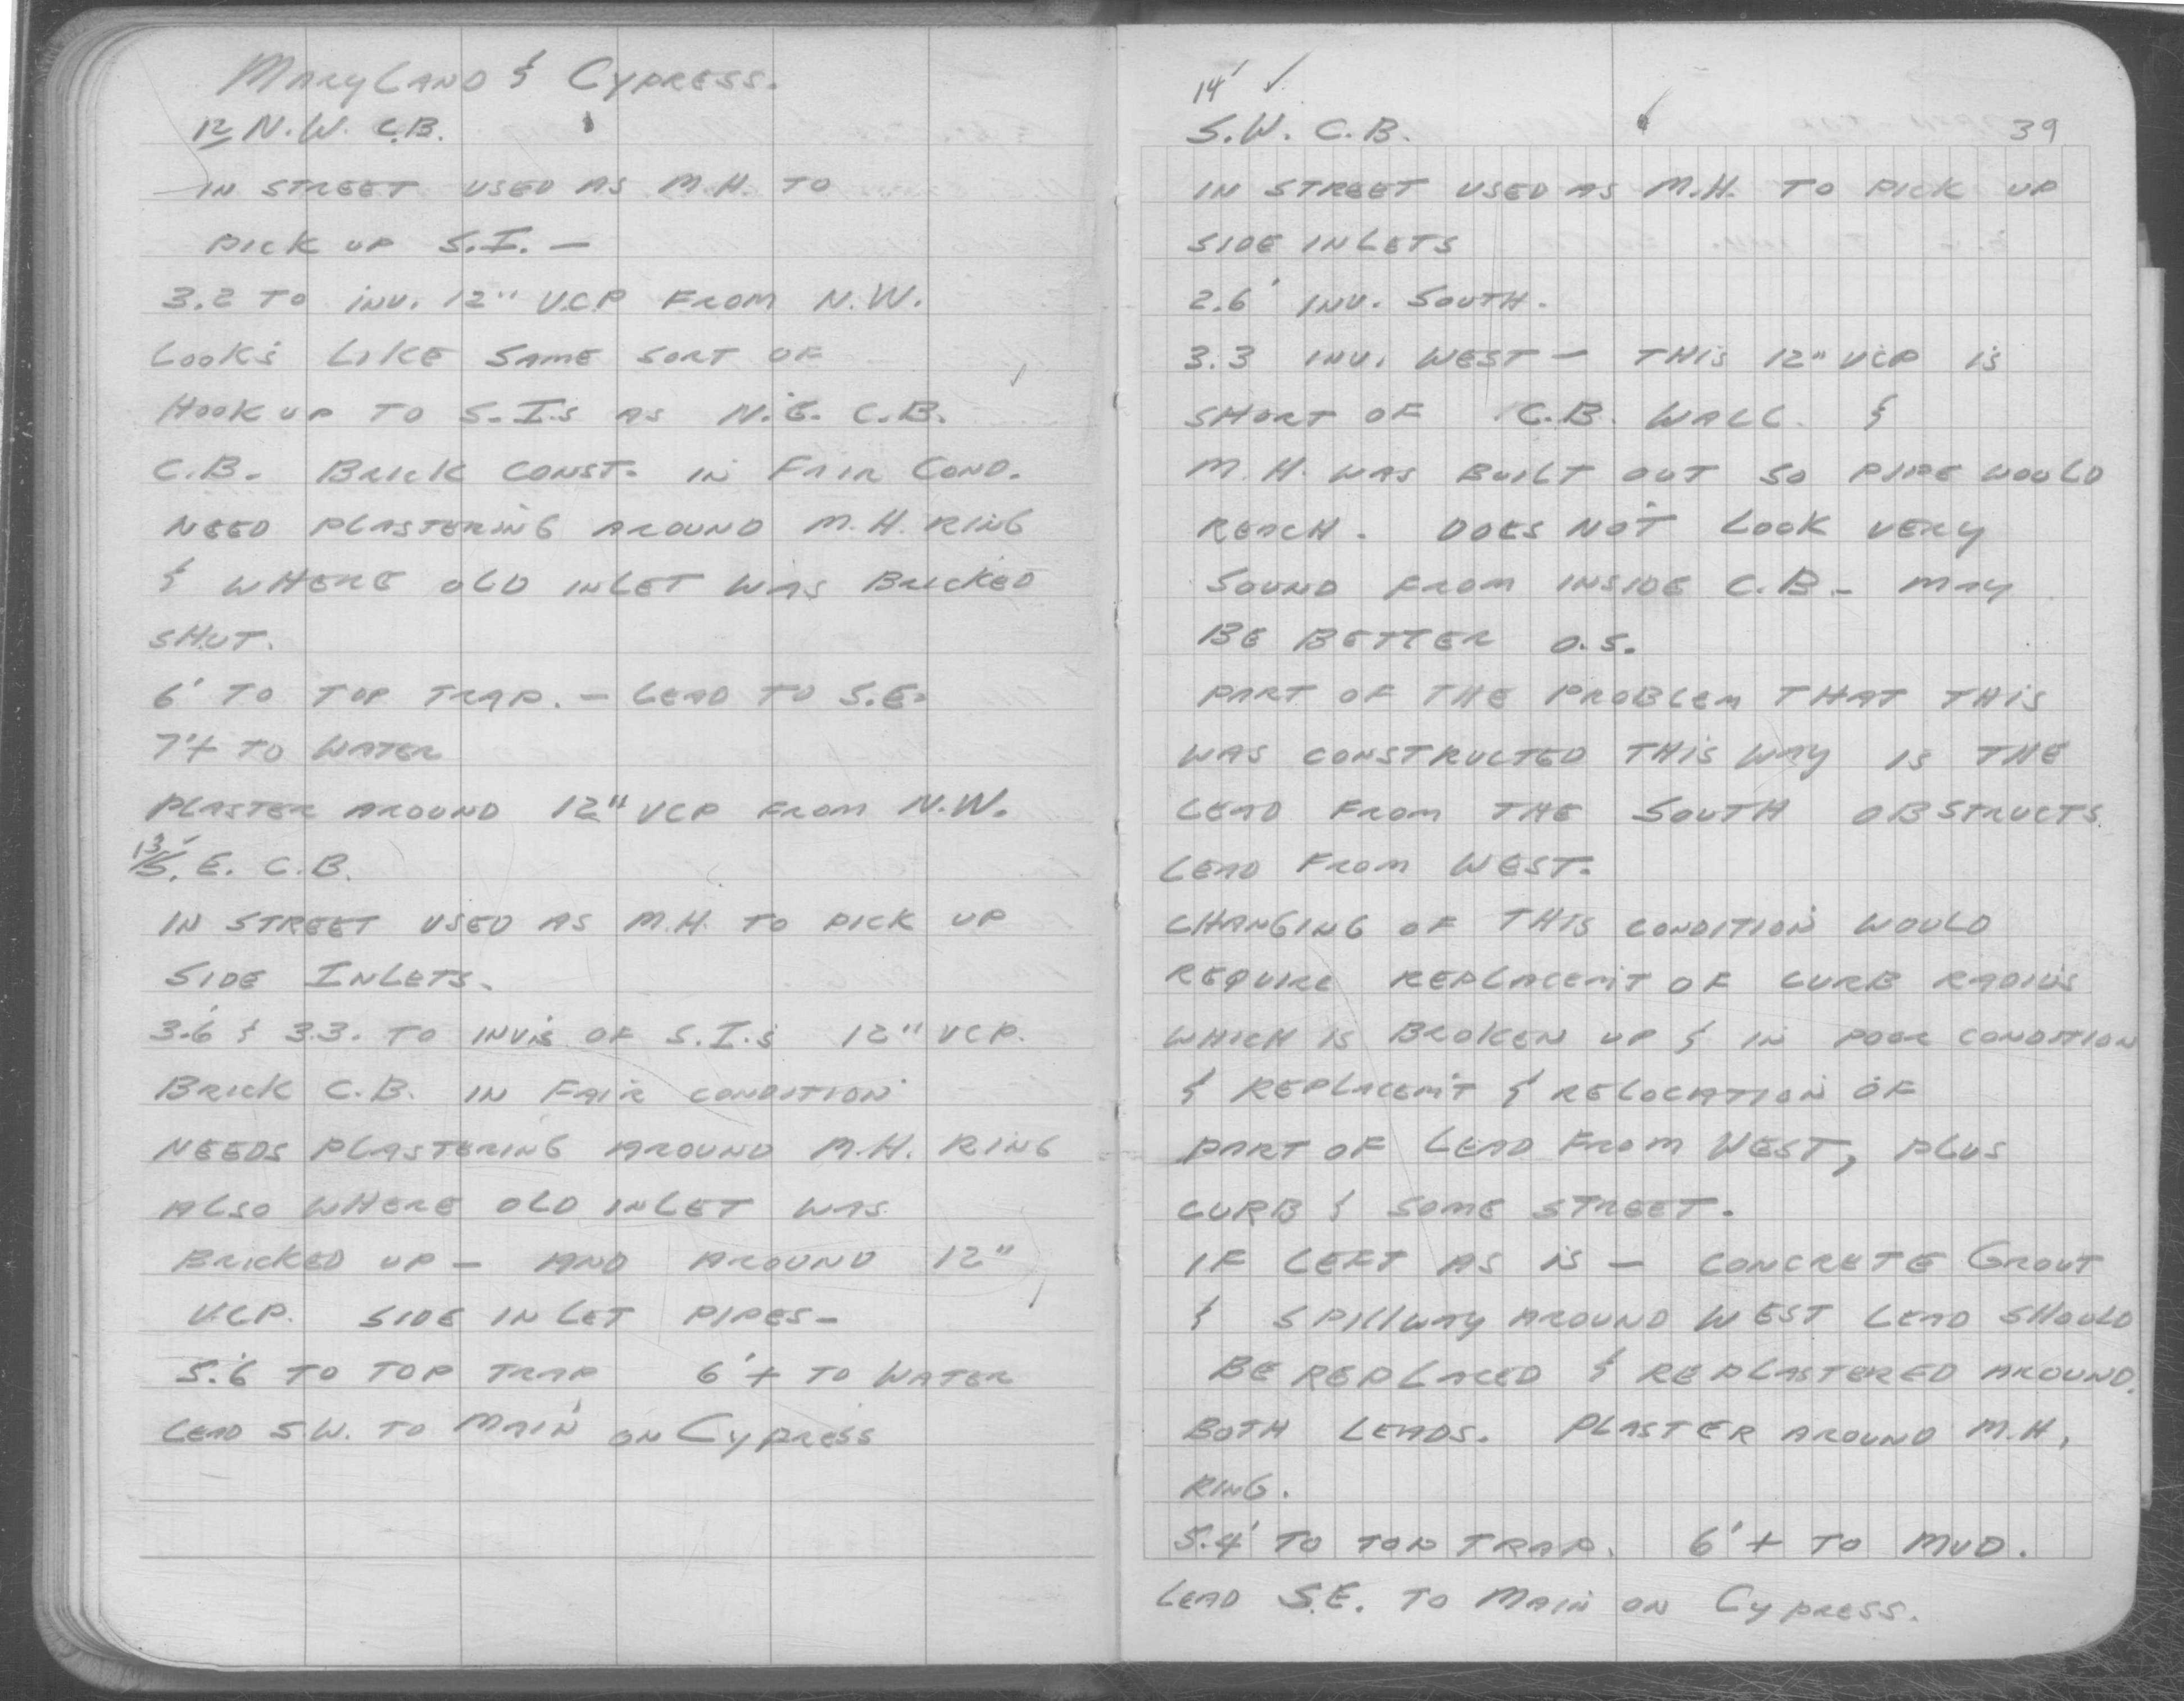 MARYLAND & CYPRESS.
12 N.W. C.B.
IN STREET USED AS M.H. TO
PICK UP S.I. —
3.2 TO INV. 12" VCP FROM N.W.
LOOKS LIKE SAME SORT OF
HOOK UP TO S.I.s AS N.E. C.B.
C.B. BRICK CONST. IN FAIR COND.
NEED PLASTERING AROUND M.H. RING
& WHERE OLD INLET WAS BRICKED
SHUT.
6' TO TOP TRAP. — LEAD TO S.E.
7'+ TO WATER
PLASTER AROUND 12" VCP FROM N.W.
13' S.E. C.B.
IN STREET USED AS M.H. TO PICK UP
SIDE INLETS.
3.6' & 3.3. TO INV.s OF S.I.s 12" VCP.
BRICK C.B. IN FAIR CONDITION
NEEDS PLASTERING AROUND M.H. RING
ALSO WHERE OLD INLET WAS
BRICKED UP — AND AROUND 12"
VCP. SIDE INLET PIPES —
5.'6 TO TOP TRAP 6'+ TO WATER
LEAD S.W. TO MAIN ON CYPRESS
14' ✓
S.W. C.B. 39
IN STREET USED AS M.H. TO PICK UP
SIDE INLETS
2.6' INV. SOUTH.
3.3 INV. WEST — THIS 12" VCP IS
SHORT OF C.B. WALL. &
M.H. WAS BUILT OUT SO PIPE WOULD
REACH. DOES NOT LOOK VERY
SOUND FROM INSIDE C.B. — MAY
BE BETTER O.S.
PART OF THE PROBLEM THAT THIS
WAS CONSTRUCTED THIS WAY IS THE
LEAD FROM THE SOUTH OBSTRUCTS
LEAD FROM WEST.
CHANGING OF THIS CONDITION WOULD
REQUIRE REPLACEM'T OF CURB RADIUS
WHICH IS BROKEN UP & IN POOR CONDITION
& REPLACEM'T & RELOCATION OF
PART OF LEAD FROM WEST, PLUS
CURB & SOME STREET.
IF LEFT AS IS — CONCRETE GROUT
& SPILLWAY AROUND WEST LEAD SHOULD
BE REPLACED & REPLASTERED AROUND
BOTH LEADS. PLASTER AROUND M.H.
RING.
5.4' TO TOP TRAP. 6'+ TO MUD.
LEAD S.E. TO MAIN ON CYPRESS.